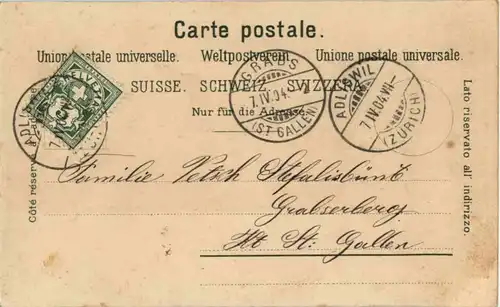 Carte postale.
Union postale universelle. Weltpostverein. Unione postale universale.
SUISSE. SCHWEIZ. SVIZZERA.
Nur für die Adresse.
Côté réservé
Lato riservato all' indirizzo.
HELVETIA
5
ADLISWIL
GRABS
7.IV.04.
(ST. GALLEN)
ADLISWIL
7.IV.04.VII-
(ZÜRICH)
Familie Petsch
Grabserberg
Kt St. Gallen